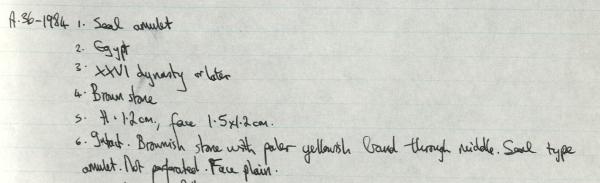 A.36-1984 1. Seal amulet
2. Egypt
3. XXVI dynasty or later
4. Brown stone
5. H. 1.2cm., face 1.5x1.2cm.
6. Intact. Brownish stone with paler yellowish band through middle. Seal type
amulet. Not perforated. Face plain.